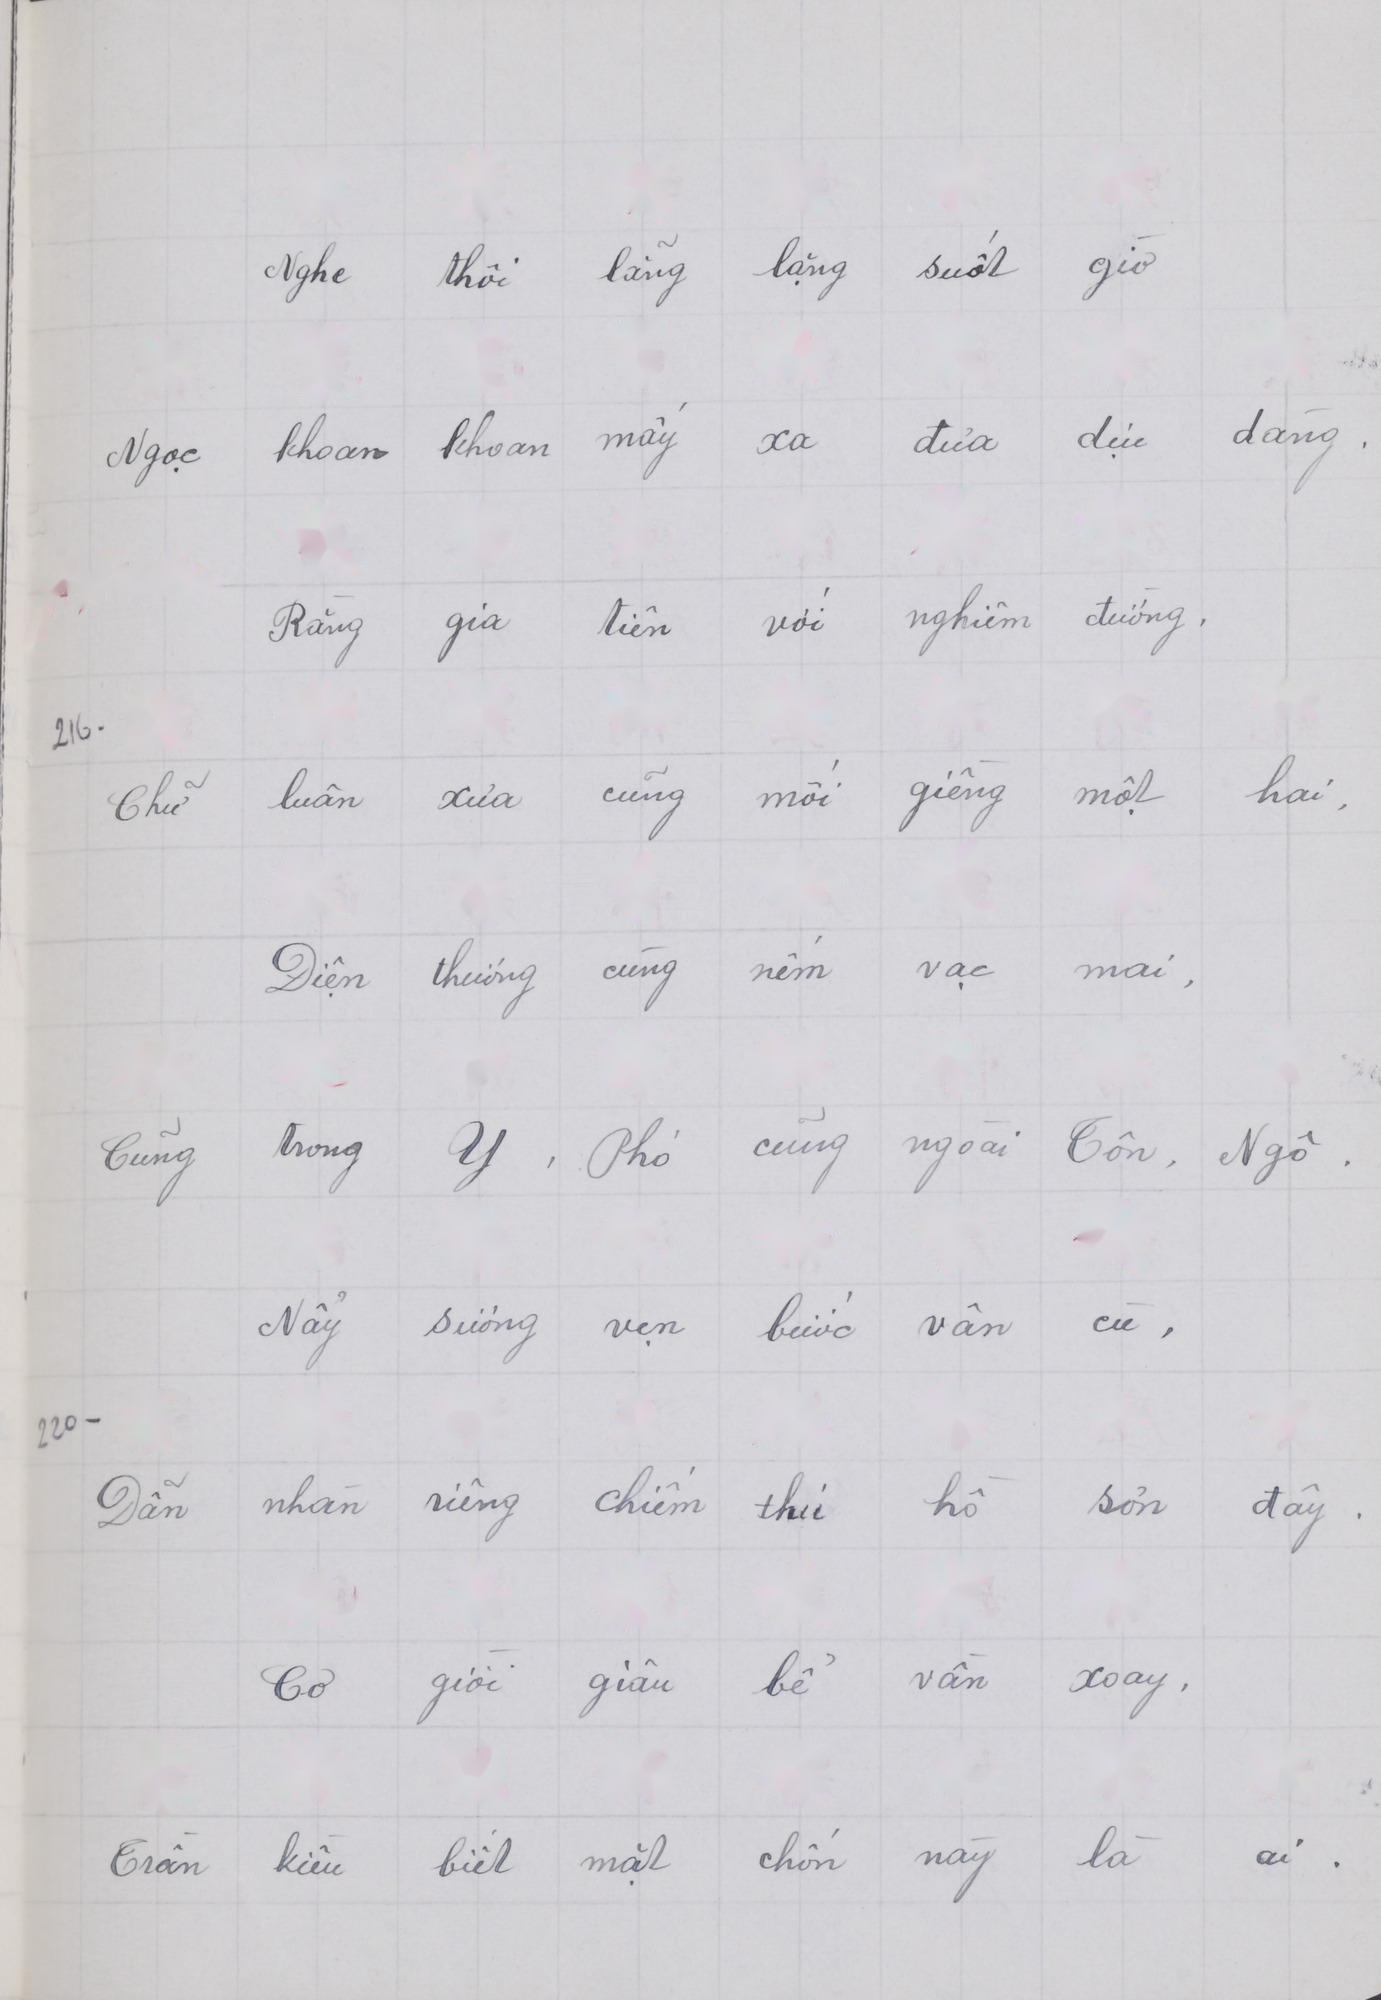 Nghe thôi lẵng lặng suốt giờ
Ngọc khoan khoan mấy xa đưa dịu dàng.
Rằng gia tiên với nghiêm đường,
216-
Chữ luân xưa cũng mối giềng một hai,
Diện thương cùng nếm vạc mai,
Cũng trong Y, Phó cũng ngoài Tôn, Ngô.
Nẩy sương vẹn bước vân cù,
220-
Dẫn nhàn riêng chiếm thú hồ sơn đây.
Cơ giời giâu bể vần xoay,
Trần kiều biết mặt chốn này là ai.